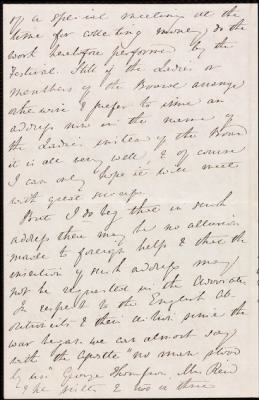 of a special meeting at the
time for collecting money, do the
work heretofore performed by the
Festival. Still if the Ladies or
members of the Board arrange
otherwise & prefer to issue an
address now in the name of
the Ladies instead of the Board
it is all very well, & of course
I can only hope it will meet
with great success.
But I do beg that in such
address there may be no allusion
made to foreign help & that the
insertion of such address may
not be requested in the Advocate.
In respect to the English Ab-
olitionists & their action since the
war began we can almost say
with the Apostle "no man stood
by us" George Thompson, Mr. Reid
& his sister & two or three